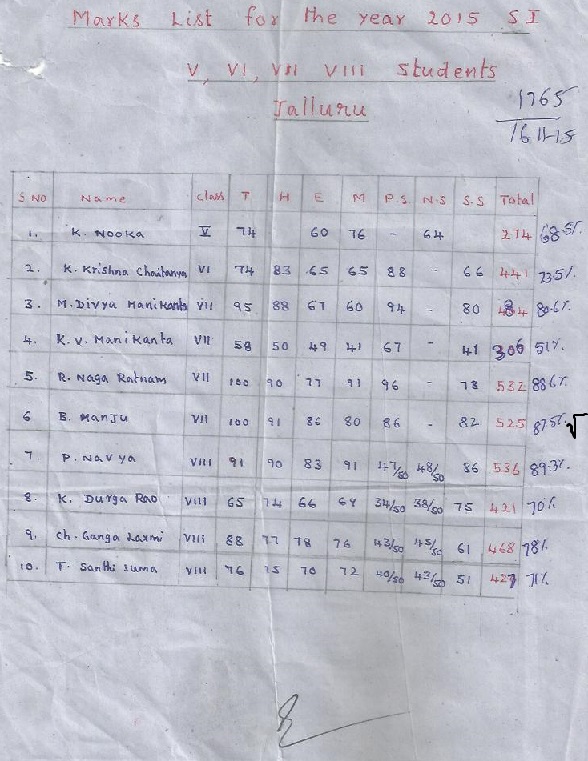 Marks List for the year 2015 SI
V, VI, VII VIII students
Jalluru
1765
S NO Name class T H E M P.S. N.S S.S Total
1. K. Nooka V 74 60 76 - 64 274 68.5%
2. K. Krishna Chaitanya VI 74 83 65 65 88 - 66 441 73.5%
3. M. Divya Manikanta VII 95 88 67 60 94 - 80 484 80.6%
4. K. V. Manikanta VII 58 50 49 41 67 41 306 51%
5. R. Naga Ratnam VII 100 90 77 91 96 - 78 532 88.6%
6 B. Manju VII 100 91 86 80 86 - 82 525 87.5% √
7 P. Navya VIII 91 90 83 91 47/50 48/50 86 536 89.3%
8. K. Durga Rao VIII 65 74 66 69 34/50 38/50 75 421 70%
9. Ch. Ganga Laxmi VIII 88 77 78 76 43/50 45/50 61 468 78%
10. T. Santhi suma VIII 76 75 70 72 40/50 43/50 51 427 71%